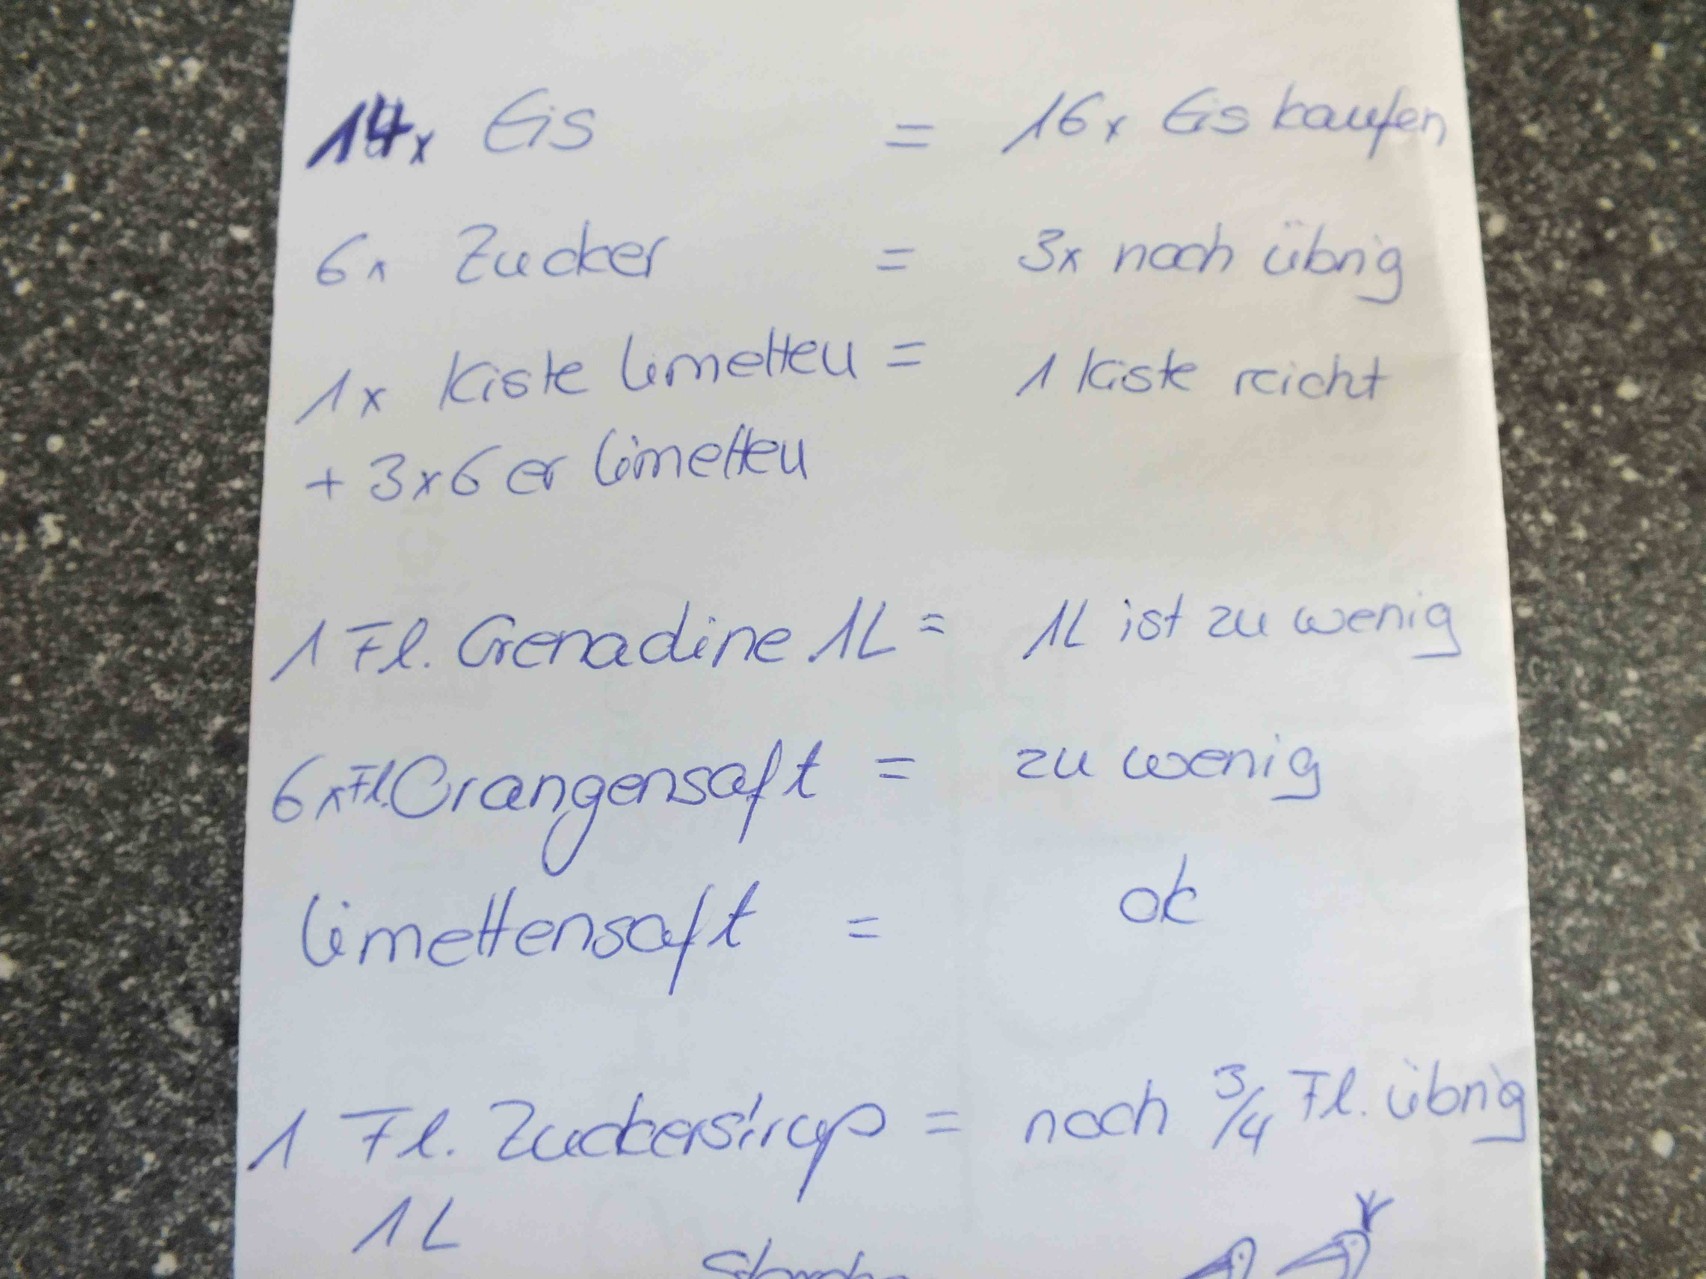 14x Eis = 16x Eis kaufen
6x Zucker = 3x noch übrig
1x Kiste Limetten = 1 Kiste reicht
+ 3x6er Limetten
1 Fl. Grenadine 1L = 1L ist zu wenig
6x Fl. Orangensaft = zu wenig
Limettensaft = ok
1 Fl. Zuckersirup = noch 3/4 Fl. übrig
1L